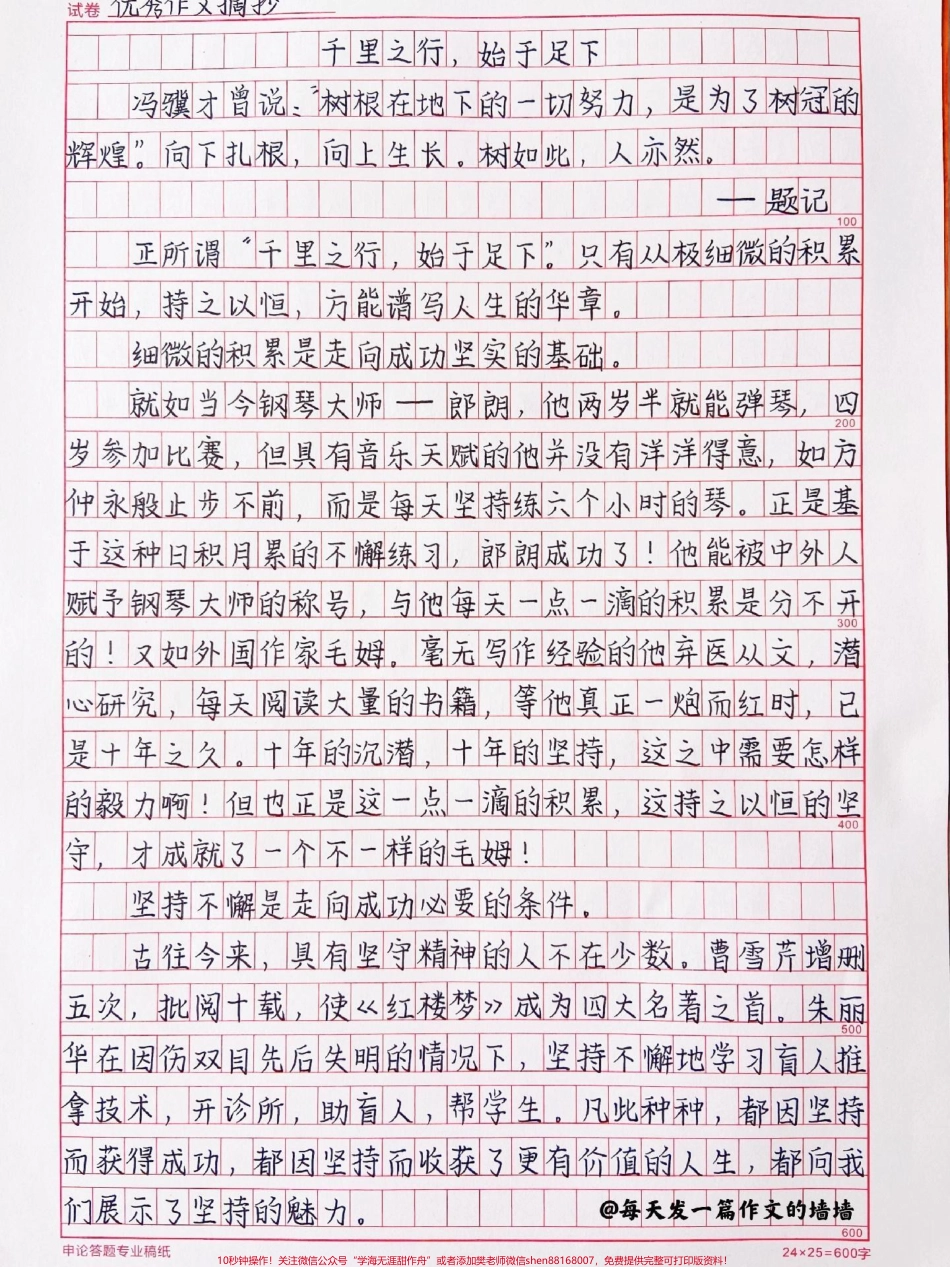 试卷 优秀作文摘抄
千里之行，始于足下
冯骥才曾说：“树根在地下的一切努力，是为了树冠的
辉煌”。向下扎根，向上生长。树如此，人亦然。
—题记
100
正所谓“千里之行，始于足下”。只有从极细微的积累
开始，持之以恒，方能谱写人生的华章。
细微的积累是走向成功坚实的基础。
就如当今钢琴大师—郎朗，他两岁半就能弹琴，四
200
岁参加比赛，但具有音乐天赋的他并没有洋洋得意，如方
仲永般止步不前，而是每天坚持练六个小时的琴。正是基
于这种日积月累的不懈练习，郎朗成功了！他能被中外人
赋予钢琴大师的称号，与他每天一点一滴的积累是分不开
300
的！又如外国作家毛姆。毫无写作经验的他弃医从文，潜
心研究，每天阅读大量的书籍，等他真正一炮而红时，已
是十年之久。十年的沉潜，十年的坚持，这之中需要怎样
的毅力啊！但也正是这一点一滴的积累，这持之以恒的坚
400
守，才成就了一个不一样的毛姆！
坚持不懈是走向成功必要的条件。
古往今来，具有坚守精神的人不在少数。曹雪芹增删
五次，批阅十载，使《红楼梦》成为四大名著之首。朱丽
500
华在因伤双目先后失明的情况下，坚持不懈地学习盲人推
拿技术，开诊所，助盲人，帮学生。凡此种种，都因坚持
而获得成功，都因坚持而收获了更有价值的人生，都向我
们展示了坚持的魅力。
@每天发一篇作文的墙墙
600
申论答题专业稿纸 24×25=600字
10秒钟操作！关注微信公众号“学海无涯甜作舟”或者添加樊老师微信shen88168007，免费提供完整可打印版资料！